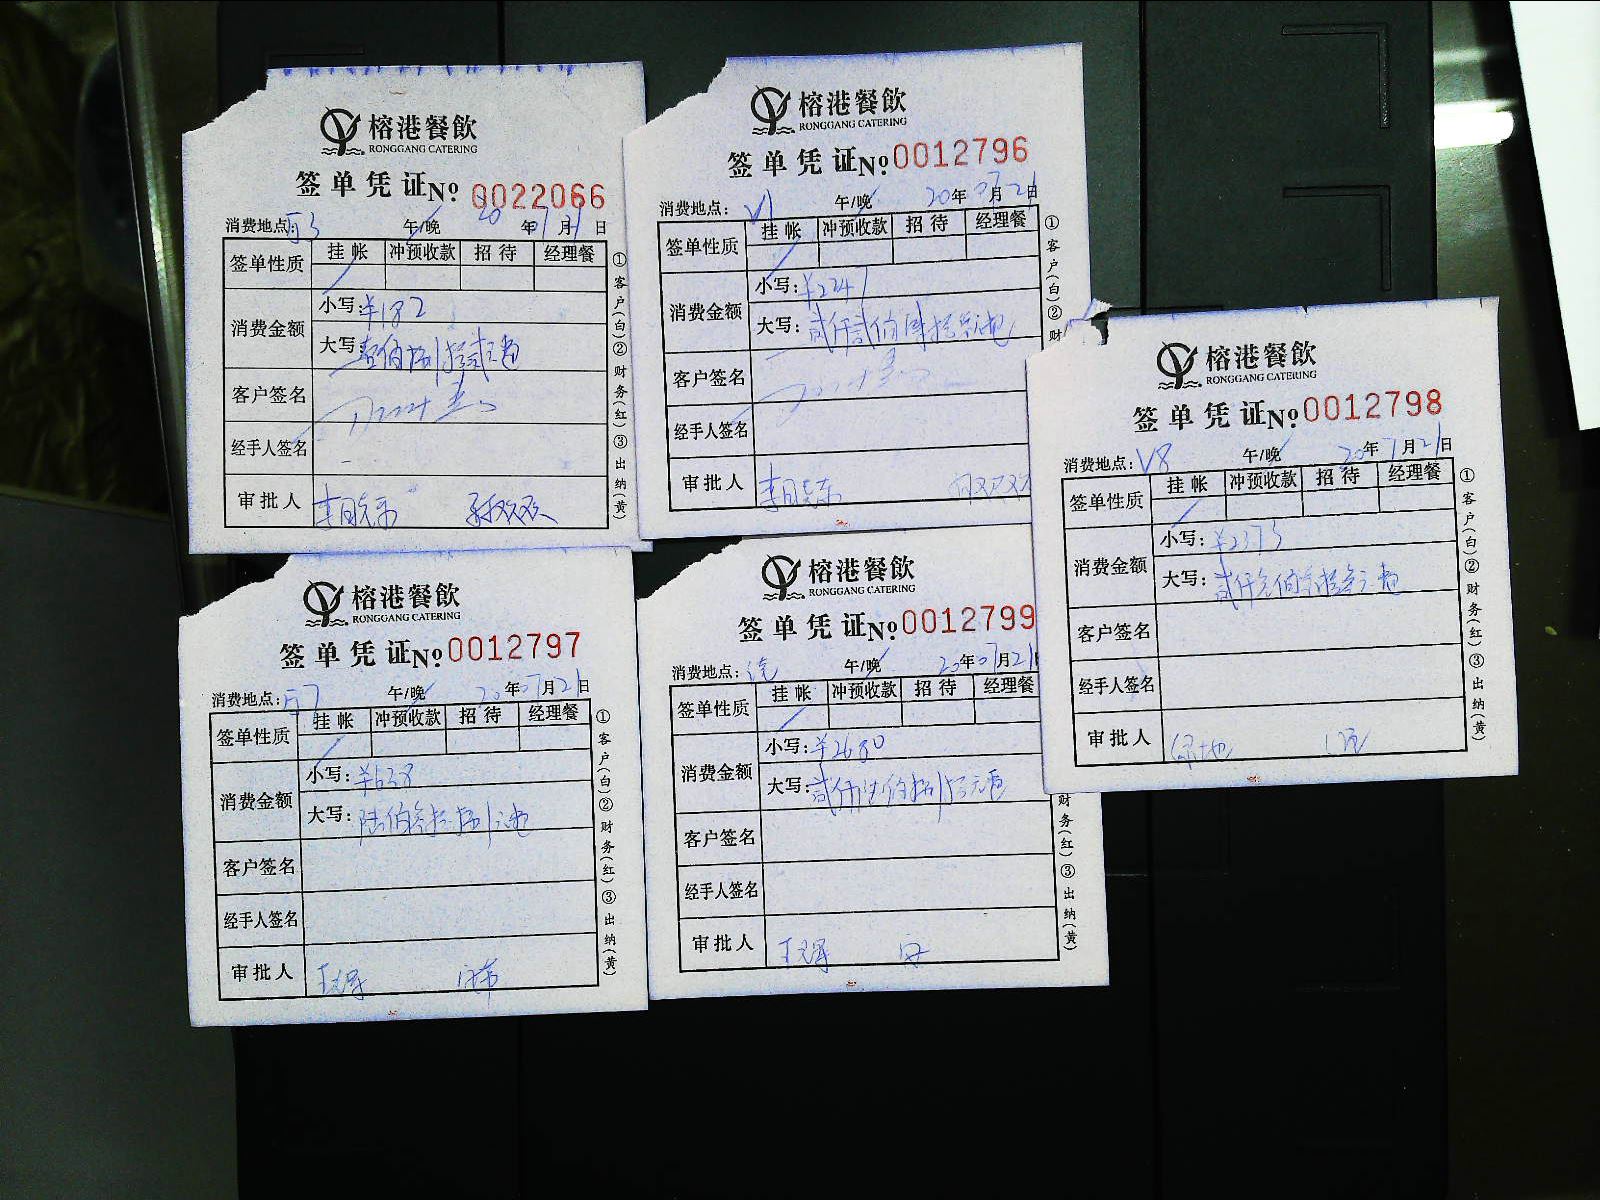 榕港餐飲
RONGGANG CATERING
签单凭证 № 0022066
消费地点: 午/晚 20年7月21日
签单性质 挂帐 冲预收款 招待 经理餐
消费金额 小写: ¥182
大写: 壹佰捌拾贰元
客户签名
经手人签名
审批人
①客户(白)②财务(红)③出纳(黄)
榕港餐飲
RONGGANG CATERING
签单凭证 № 0012796
消费地点: V1 午/晚 20年07月21日
签单性质 挂帐 冲预收款 招待 经理餐
消费金额 小写: ¥2241
大写: 贰仟贰佰肆拾
客户签名
经手人签名
审批人
①客户(白)②财
榕港餐飲
RONGGANG CATERING
签单凭证 № 0012798
消费地点: V8 午/晚 20年7月21日
签单性质 挂帐 冲预收款 招待 经理餐
消费金额 小写: ¥2373
大写: 贰仟叁佰柒拾叁元
客户签名
经手人签名
审批人 绿地
①客户(白)②财务(红)③出纳(黄)
榕港餐飲
RONGGANG CATERING
签单凭证 № 0012797
消费地点: 午/晚 20年07月21日
签单性质 挂帐 冲预收款 招待 经理餐
消费金额 小写: ¥638
大写: 陆佰叁拾捌元
客户签名
经手人签名
审批人
①客户(白)②财务(红)③出纳(黄)
榕港餐飲
RONGGANG CATERING
签单凭证 № 0012799
消费地点: 午/晚 20年07月21日
签单性质 挂帐 冲预收款 招待 经理餐
消费金额 小写: ¥2680
大写: 贰仟陆佰捌拾元
客户签名
经手人签名
审批人
财务(红)③出纳(黄)